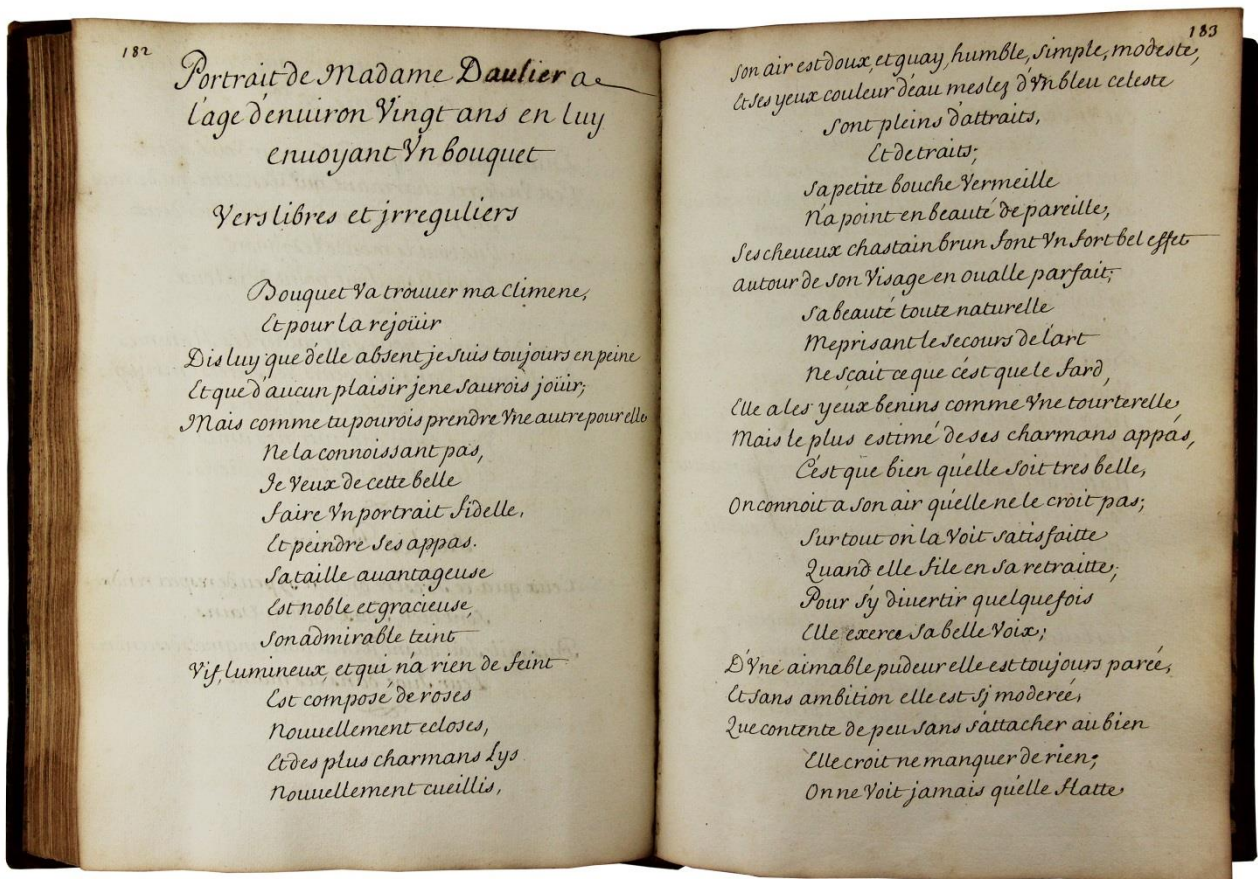 182
Portrait de Madame Daulier a
l'age d'enuiron Vingt ans en luy
enuoyant Vn bouquet
Vers libres et jrreguliers
Bouquet Va trouuer ma Climene,
Et pour la rejoüir
Dis luy que d'elle absent je suis toujours en peine
Et que d'aucun plaisir je ne saurois joüir;
Mais comme tu pourois prendre Vne autre pour elle
Ne la connoissant pas,
Je Veux de cette belle
faire Vn portrait fidelle,
Et peindre ses appas.
Sa taille auantageuse
Est noble et gracieuse,
Son admirable teint
Vif, lumineux, et qui n'a rien de feint
Est composé de roses
Nouuellement ecloses,
Et des plus charmans Lys
Nouuellement cueillis,
183
Son air est doux, et guay, humble, simple, modeste,
Et ses yeux couleur d'eau meslez d'Vn bleu celeste
Sont pleins d'attraits,
Et de traits;
Sa petite bouche Vermeille
N'a point en beauté de pareille,
Ses cheueux chastain brun font Vn fort bel effet
Autour de son Visage en oualle parfait;
Sa beauté toute naturelle
Meprisant le secours de l'art
Ne sçait ce que c'est que le fard,
Elle a les yeux benins comme Vne tourterelle,
Mais le plus estimé de ses charmans appas,
C'est que bien qu'elle soit tres belle,
On connoit a son air qu'elle ne le croit pas;
Sur tout on la Voit satisfaitte
Quand elle file en sa retraitte,
Pour s'y diuertir quelquefois
Elle exerce sa belle Voix;
D'Vne aimable pudeur elle est toujours parée,
Et sans ambition elle est sj moderée,
Que contente de peu sans s'attacher au bien
Elle croit ne manquer de rien;
On ne Voit jamais qu'elle flatte